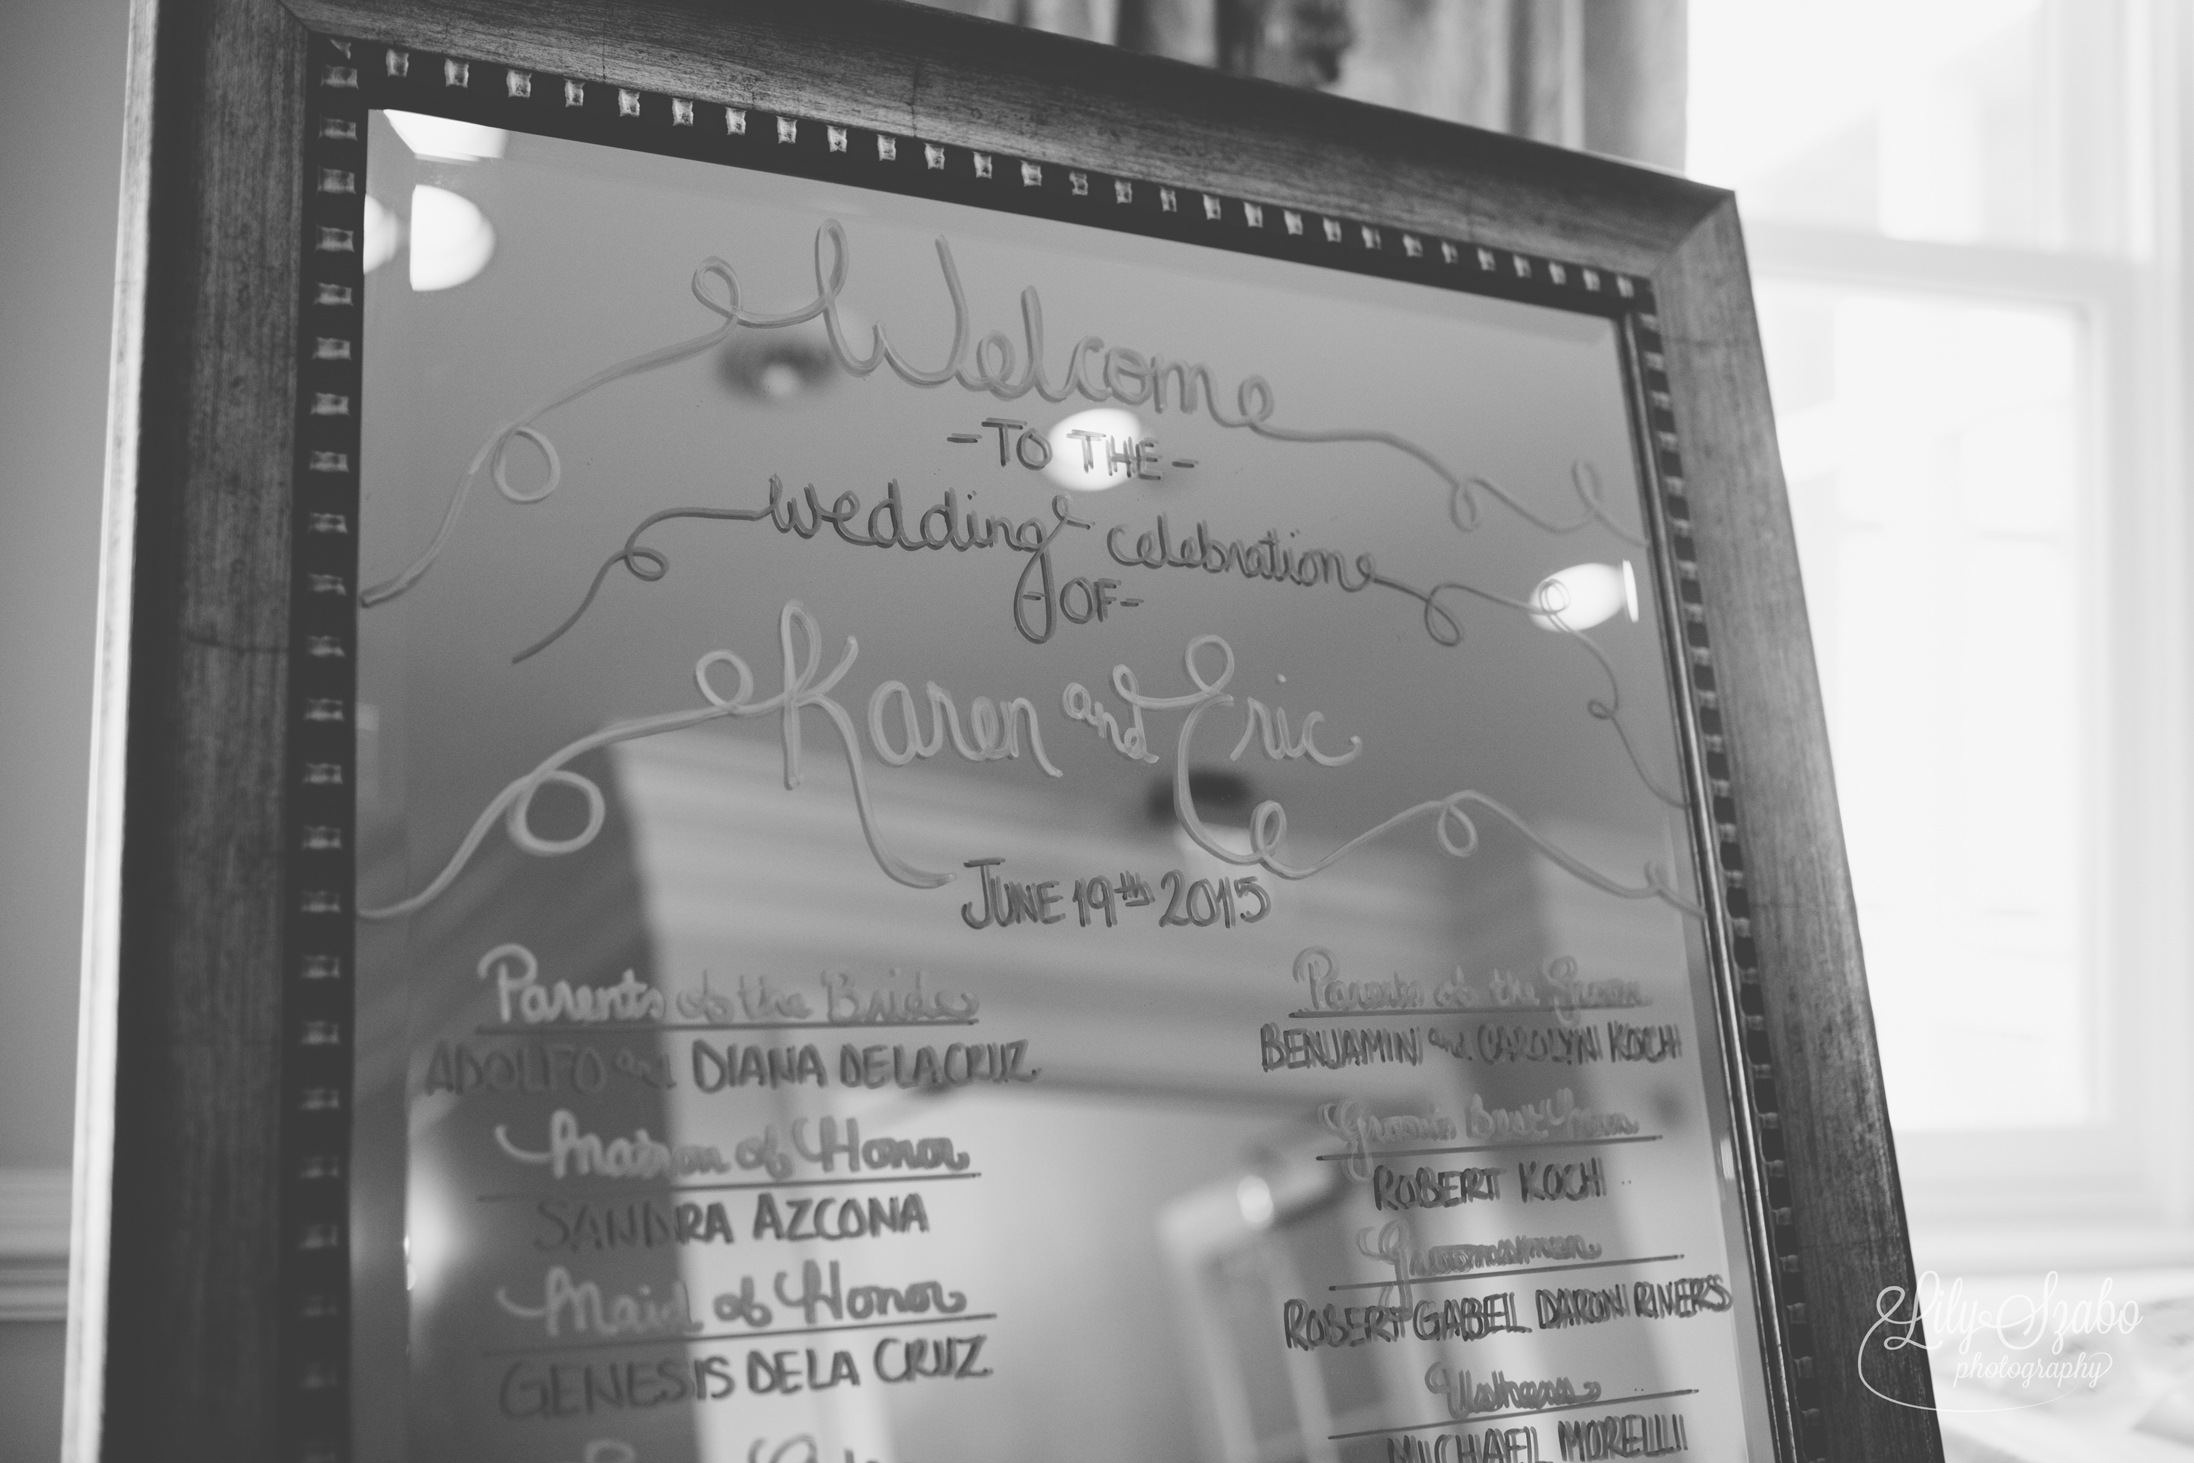 Welcome
-TO THE-
wedding celebration
-OF-
Karen and Eric
JUNE 19th 2015
Parents of the Bride
ADOLFO and DIANA DELACRUZ
Matron of Honor
SANDRA AZCONA
Maid of Honor
GENESIS DELA CRUZ
Parents of the Groom
BENJAMIN and CAROLYN KOCH
Groom's Best Man
ROBERT KOCH
Groomsmen
ROBERT GABEL DARON RIVERS
Ushers
MICHAEL MORELLI
Lily Szabo
photography